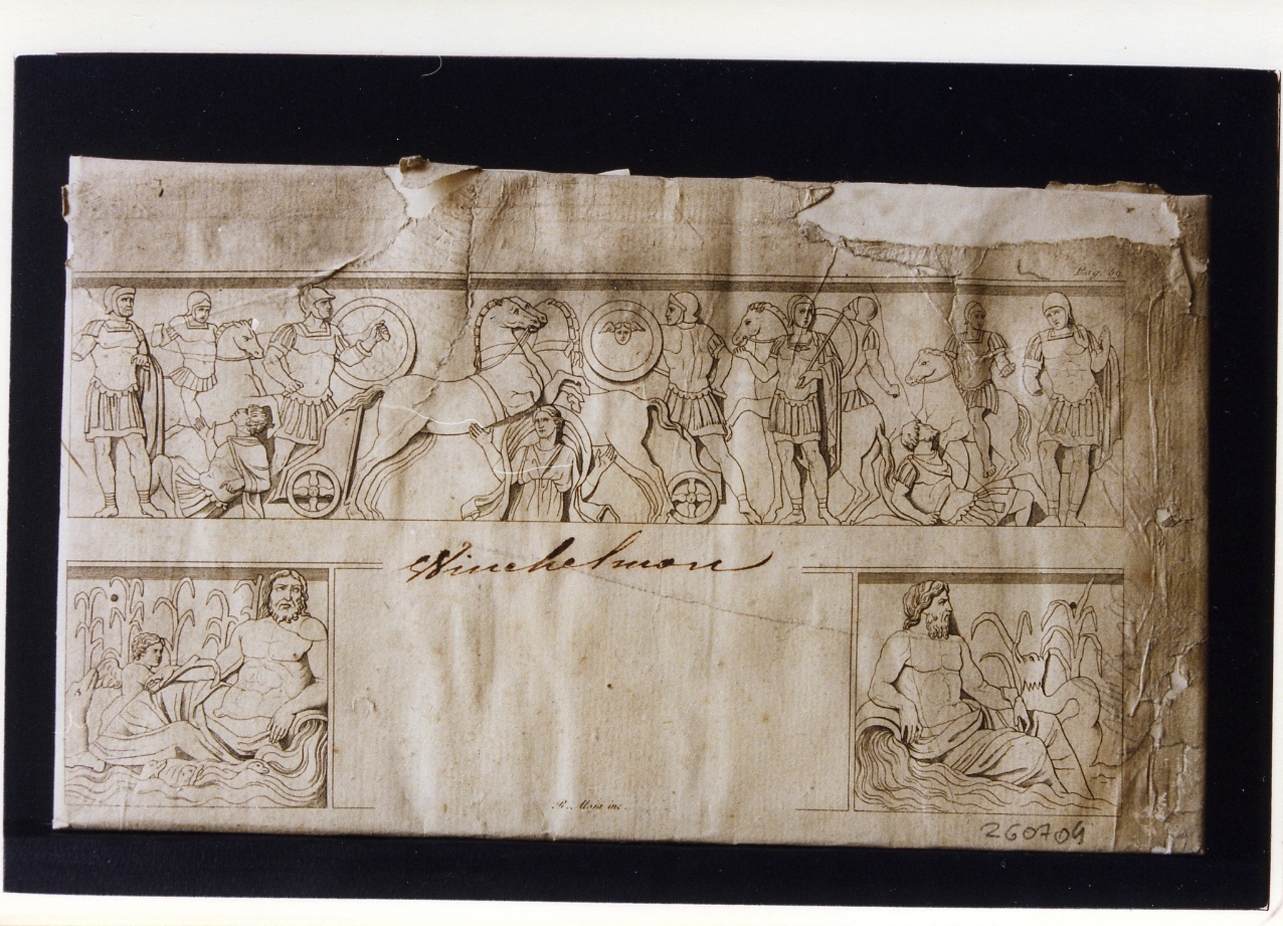 Pag. 59
Winckelman
R. Aloja inc.
260704